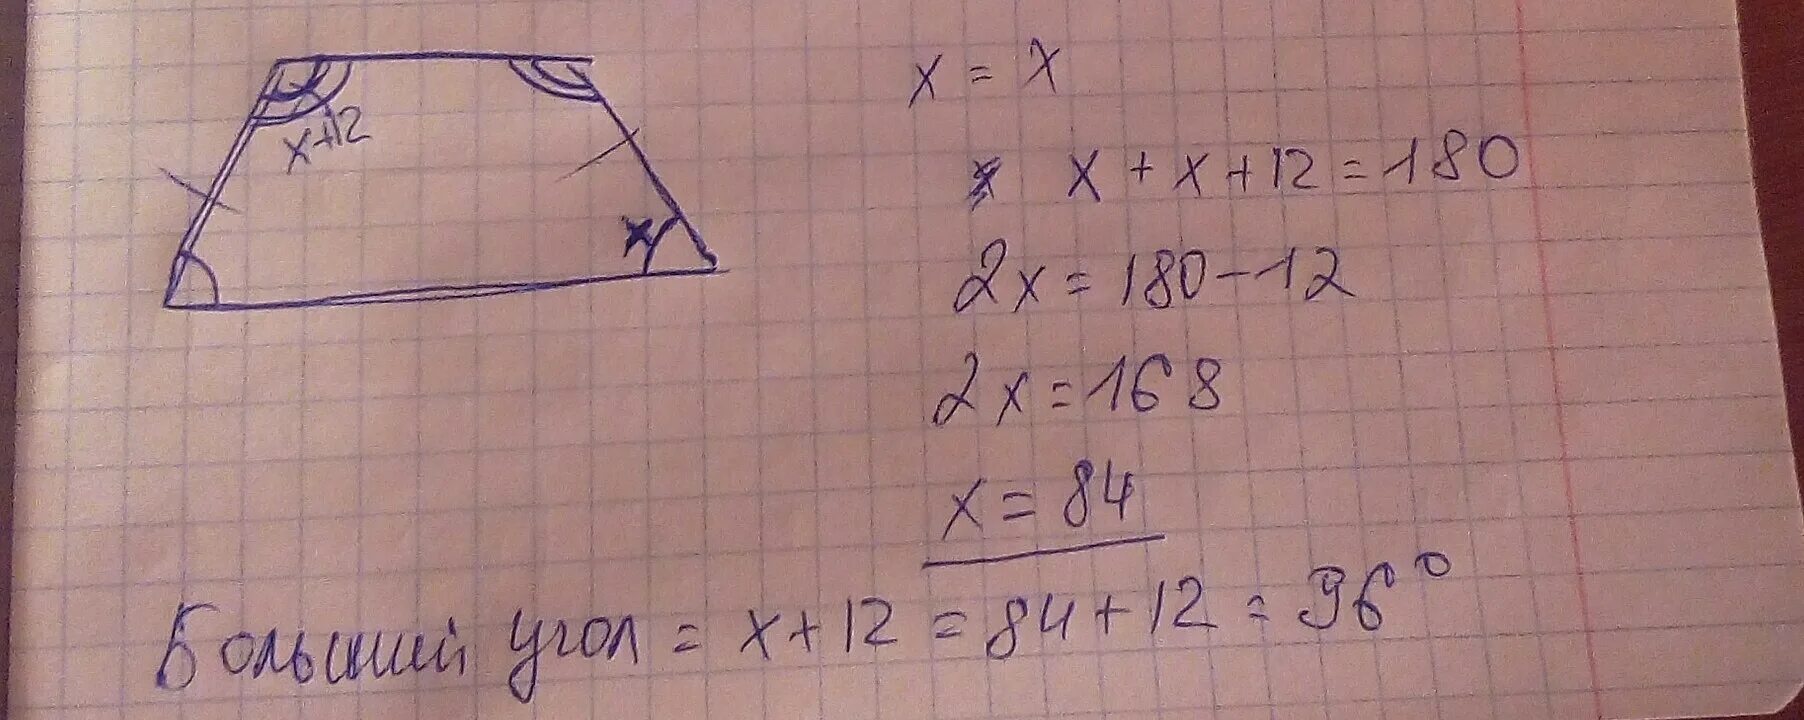 x+12
x
x = x
x + x + 12 = 180
2x = 180 - 12
2x = 168
x = 84
Больший угол = x + 12 = 84 + 12 = 96°